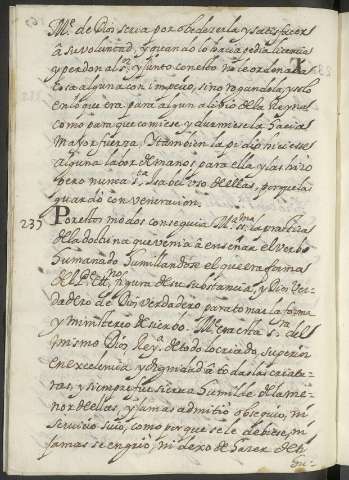 Mᵉ. de Dios serva por obedeserla y satisfacer
â su voluntad, y quando lo hacia pedia licencia
y perdon al Sʳ. y junto con esto no le ordenaba
cosa alguna con imperio, sino rogandola, y solo
en lo que era para algun alibio de la Reyna
como para que comiese y durmiese la hacia
mayor fuerza. Y tambien la pidio hiciese
alguna labor de manos para ella y las hizo
pero nunca Sᵗᵃ Isabel uso de ellas, porque las
guardo con veneracion.
235 Por estos modos conseguia Mᵃ. SSᵐᵃ la practica
de la doctrina que venia â enseñar el verbo
humanado humillandose el que era forma
del Pᵉ. Etᵉʳⁿᵒ, figura de su substancia, y Dios ver-
dadero de Dios verdadero, para tomar la forma
y ministerio de siervo. Mᵉ era esta Sʳᵃ del
mismo Dios, Reyᵃ. de todo lo criado, superior
en excelencia y dignidad â todas las criatu-
ras, y siempre fue sierva humilde de la me-
nor de ellas, y jamas admitio obsequio, ni
servicio suio, como porque se le debiese, ni
jamas se engrio, ni dexo de hacer de